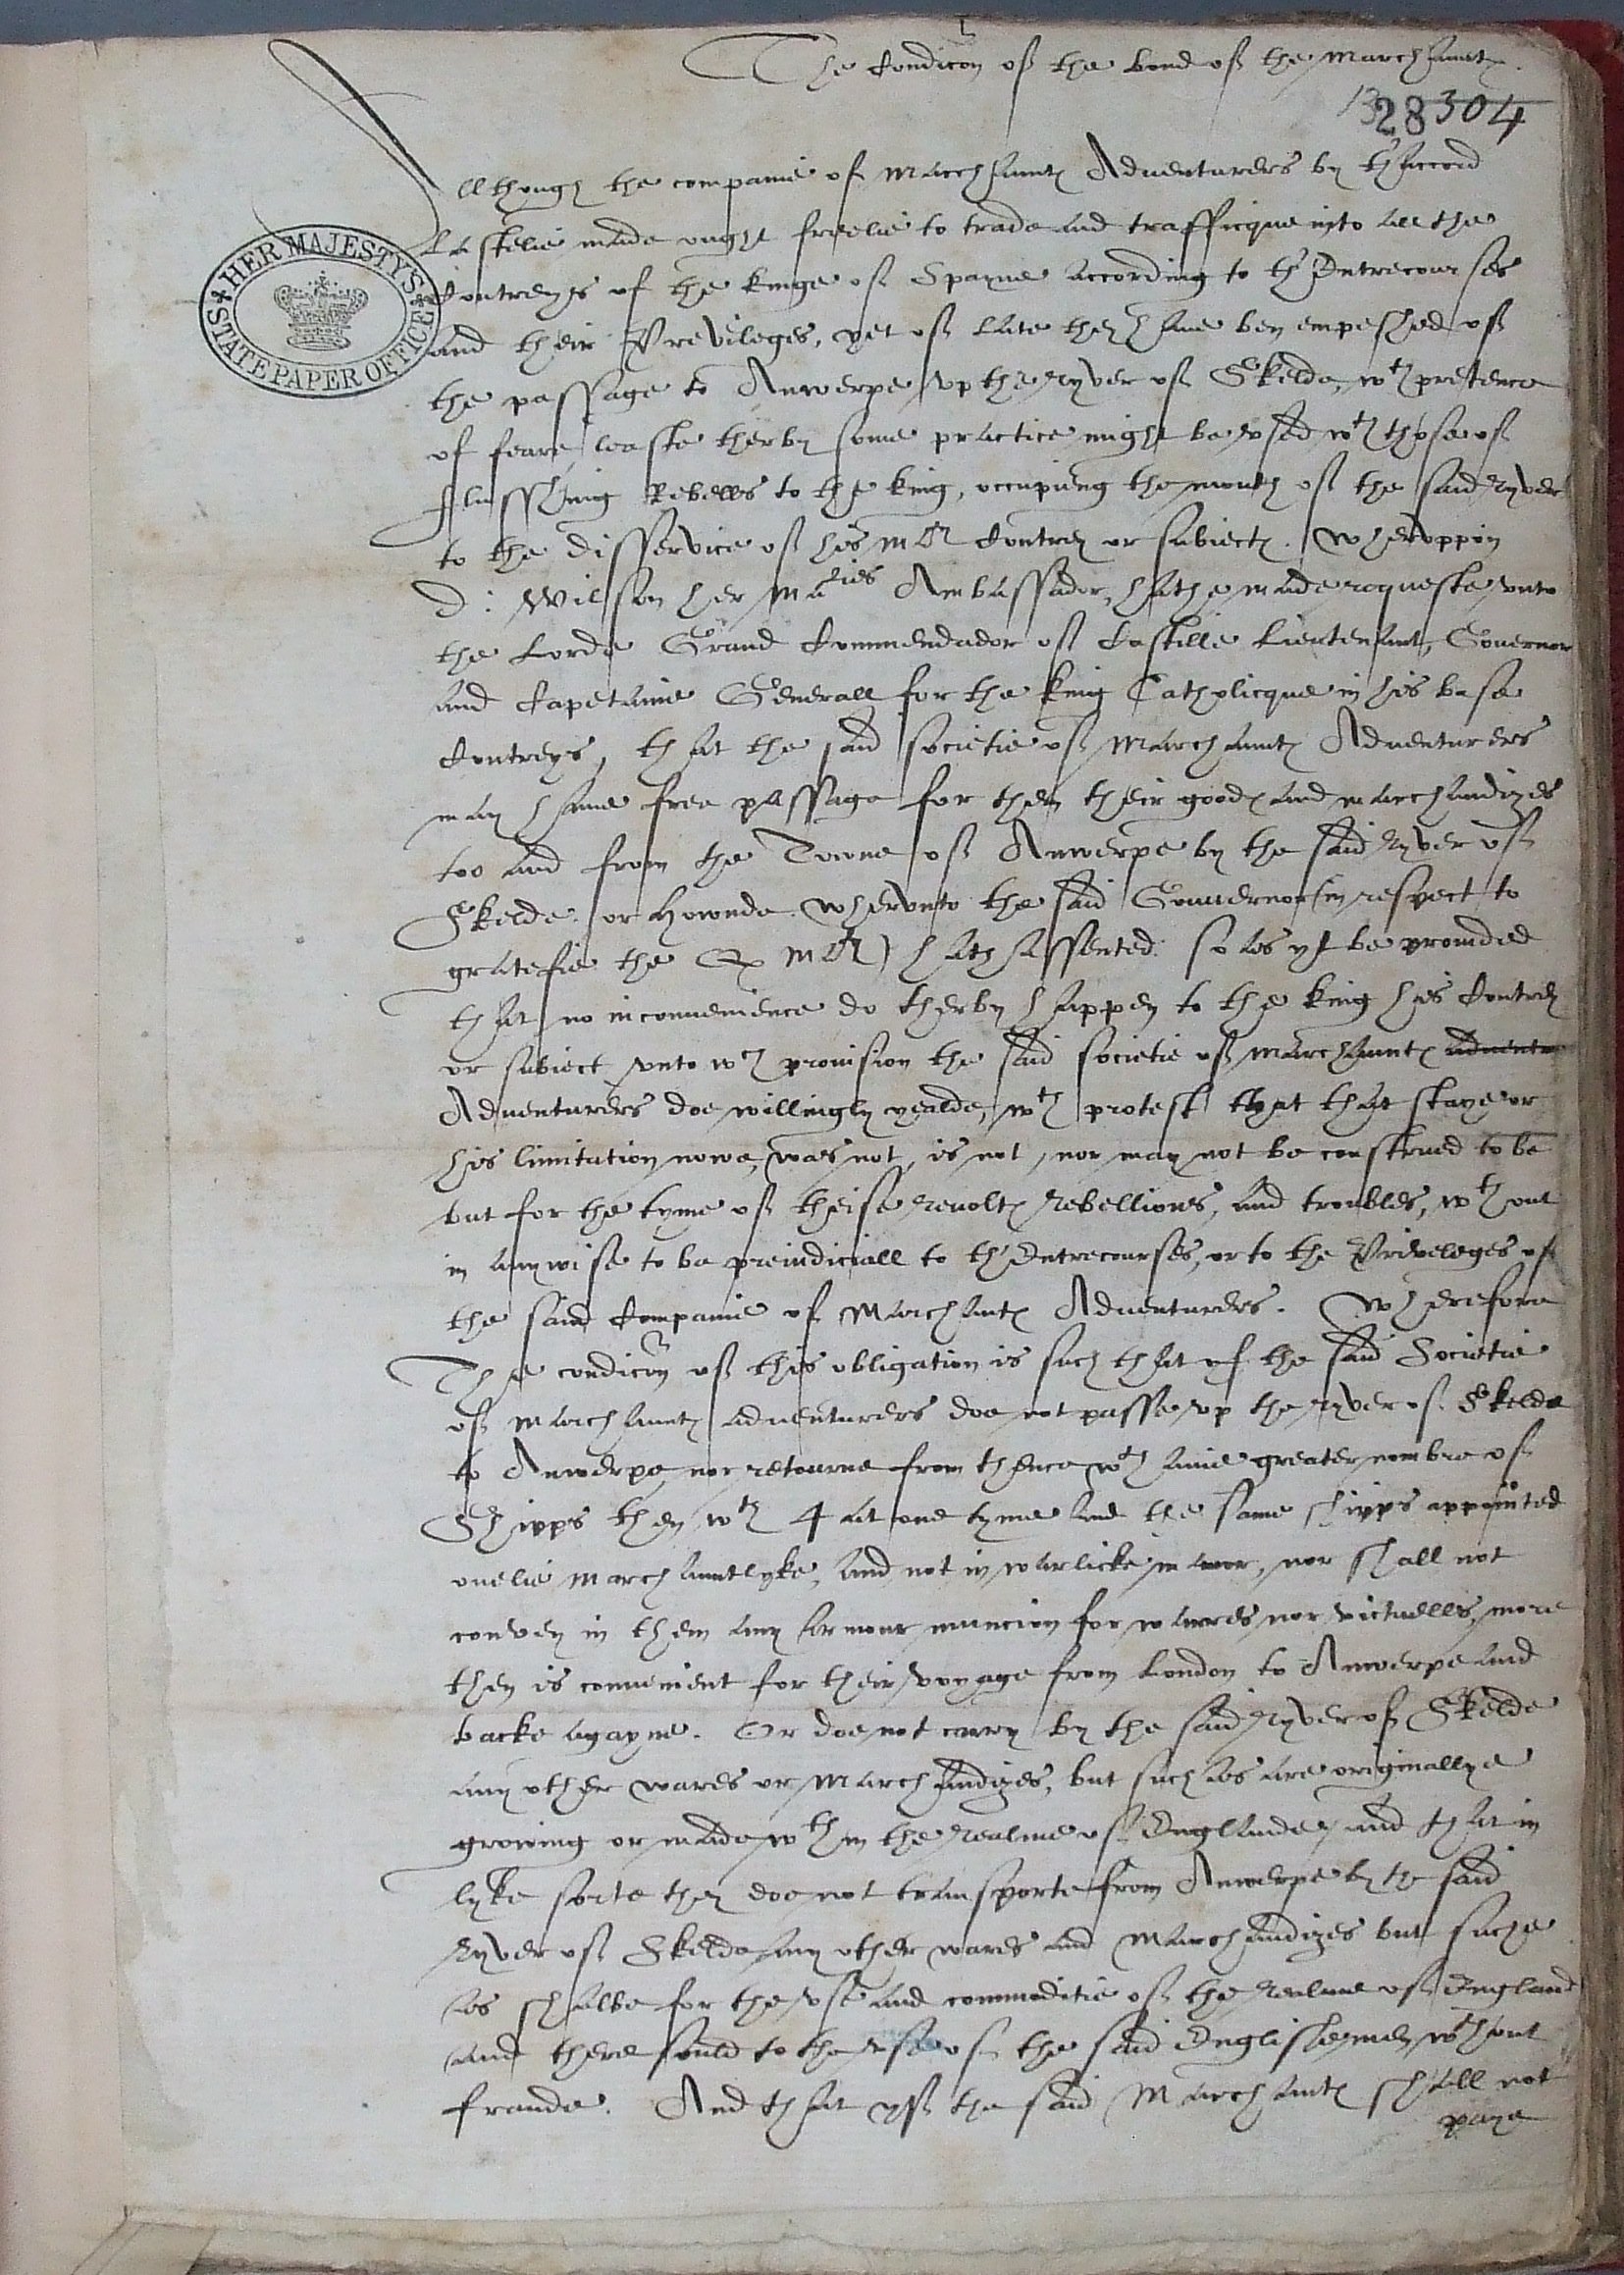 The Condicon of the bond of the Marchaunts.
13
28 304
Allthough the companie of Marchaunts Aduenturers by th'accord
HER MAJESTY'S STATE PAPER OFFICE
lastelie made ought freelie to trade and trafficque into all the
Contreyes of the kinge of Spayne according to th'Entrecourses
and their Previleges, yet of late they haue ben empeshed of
the passage to Anwerpe vp the ryver of Skelde, wth pretence
of feare, leaste therby some practice might be vsed wth those of
flusshing Rebells to the king, occupieng the mouth of the said ryver
to the disservice of his Matie Contrey or subiects. Whervppon
D: Wilson her Maties Ambassador, hathe made requeste vnto
the Lorde Grand Commendador of Castille Lieutenant, Gouernor
and Capetaine Generall for the king Catholicque in his base
Contreys, that the said societie of Marchaunts Aduenturers
may haue free passage for them their goods and marchandizes
too and from the Towne of Anwerpe by the said ryver of
Skelde or Hownde. Whervnto the said Gouuernor (in respect to
gratefie the Q Matie) hath assented. so as yt be prouided
that no inconuenience do therby happen to the king his Contrey
or subiect vnto wch prouision the said societie of Marchaunts aduentu
Aduenturers doe willingly yealde, wth protest that that staye or
his limitation nowe, was not, is not, nor may not be construed to be
but for the tyme of theise reuolts rebellions, and troubles, wthout
in anywise to be preiudiciall to th'Entrecourses, or to the Priveleges of
the said Companie of Marchants Aduenturers. Wherefore
The condicon of this obligation is such that yf the said Societie
of Marchaunts aduenturers doe not passe vp the ryver of Skelde
to Anwerpe nor retourne from thence wth anie greater nombre of
Shipps then wth 4 at one tyme and the same shipps appointed
onelie marchauntlyke, and not in warlicke maner, nor shall not
convey in them any armour municion for warres nor victuells, more
then is conuenient for their voyage from London to Anwerpe and
backe agayne. Or doe not carry by the said ryver of Skelde
any other wares or marchandizes, but such as are originallye
growing or made wthin the realme of Englande, and that in
lyke sorte they doe not transporte from Anwerpe by the said
ryver of Skelde any other wares and marchandizes but suche
as shalbe for the vse and commoditie of the realme of England
and there sould to the vse of the said Englishemen, wthout
fraude. And that yf the said Marchants shall not
paye